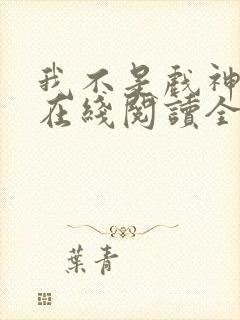 我不是戲神
在綫閱讀全
葉青